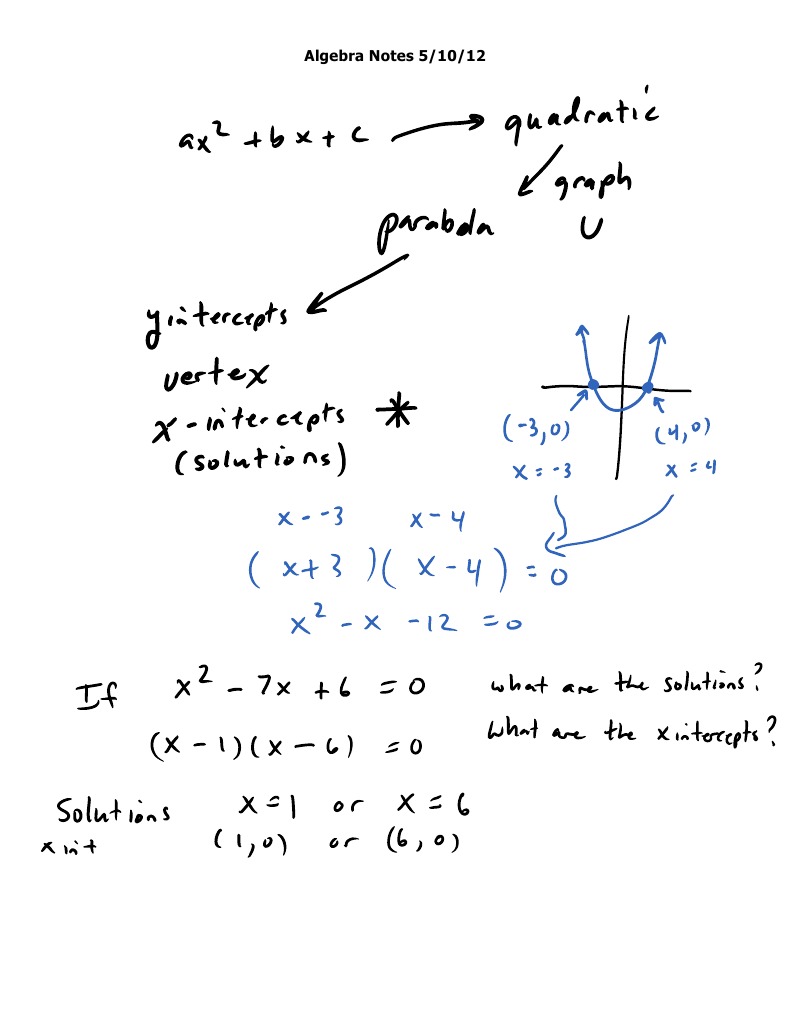 Algebra Notes 5/10/12
ax² + bx + c → quadratic
graph
parabola ∪
y intercepts
vertex
x-intercepts *
(solutions)
(-3,0) (4,0)
x = -3 x = 4
x - -3 x - 4
( x+3 )( x-4 ) = 0
x² - x - 12 = 0
If x² - 7x + 6 = 0 what are the solutions?
(x - 1)(x - 6) = 0 What are the x intercepts?
Solutions x = 1 or x = 6
x int (1,0) or (6,0)